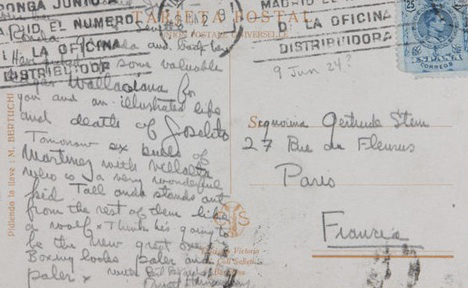 PONGA
MADRID EL NUMERO
D LA OFICINA
DISTRIBUIDORA
TARJETA POSTAL
UNION POSTALE UNIVERSELLE
MADRID EL
D LA OFICINA
DISTRIBUIDORA
25
CORREOS
9 Jun 24?
and
some valuable
Wallaciana for
you and an illustrated life
and death of Joselito
Tomorrow six bulls of
Martinez with Villalta
who is a very wonderful
kid Tall and stands out
from the rest of them like
a wolf. Think he's going to
be the new great one.
Boxing looks paler and
paler x
Signorina Gertrude Stein
27 Rue de Fleurus
Paris
France
Pidiendo la llave : M. BERTUCHI
Victoria